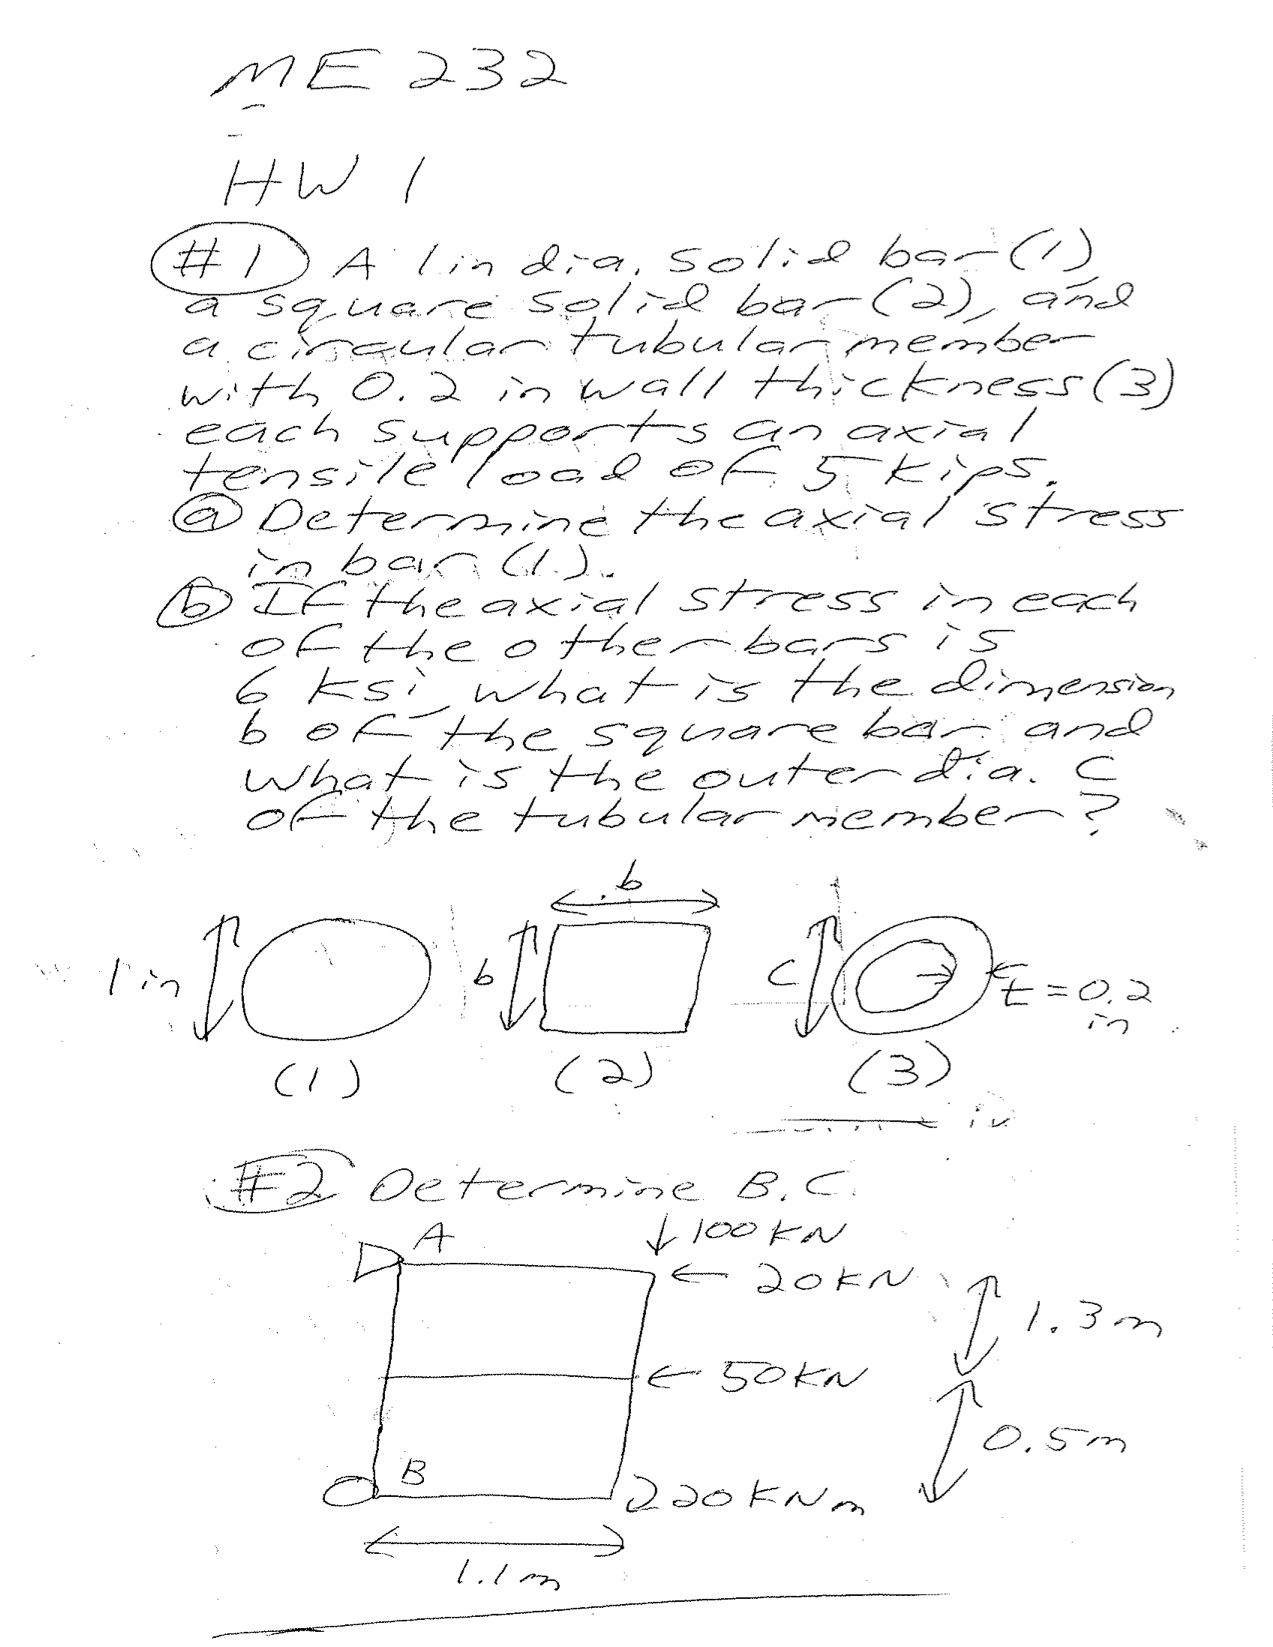 ME 232
HW 1
#1 A 1 in dia. solid bar (1)
a square solid bar (2), and
a circular tubular member
with 0.2 in wall thickness (3)
each supports an axial
tensile load of 5 kips.
a Determine the axial stress
in bar (1).
b If the axial stress in each
of the other bars is
6 ksi, what is the dimension
b of the square bar and
what is the outer dia. C
of the tubular member?
b
1 in b C t = 0.2
in
(1) (2) (3)
#2 Determine B.C.
A ↓ 100 KN
← 20 KN
1.3 m
← 50 KN
0.5 m
B
220 KNm
1.1 m